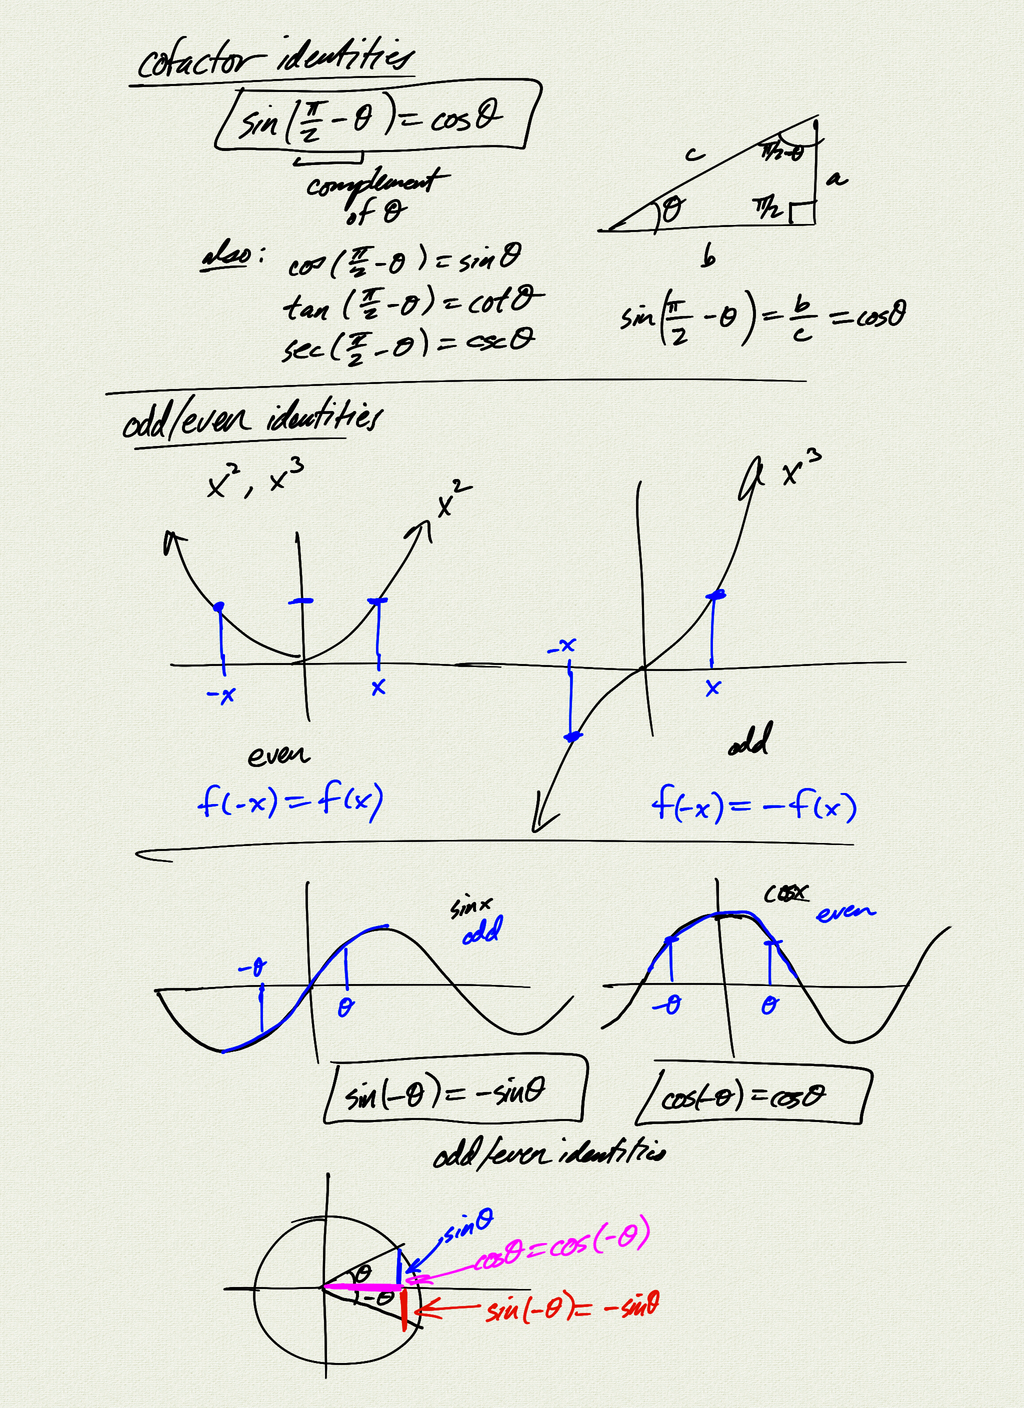 cofactor identities
sin(π/2 - θ) = cosθ
complement
of θ
c
π/2-θ
a
θ
π/2
b
also: cos(π/2 - θ) = sinθ
tan(π/2 - θ) = cotθ
sec(π/2 - θ) = cscθ
sin(π/2 - θ) = b/c = cosθ
odd/even identities
x², x³
x²
x³
-x
x
-x
x
even
f(-x) = f(x)
odd
f(-x) = -f(x)
sinx
odd
-θ
θ
cosx
even
-θ
θ
sin(-θ) = -sinθ
cos(-θ) = cosθ
odd/even identities
sinθ
cosθ = cos(-θ)
θ
-θ
sin(-θ) = -sinθ